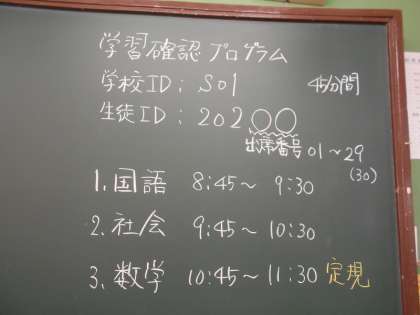 学習確認プログラム
学校ID: S01 45分間
生徒ID: 202○○
出席番号 01～29
(30)
1. 国語 8:45～ 9:30
2. 社会 9:45～ 10:30
3. 数学 10:45～11:30 定規